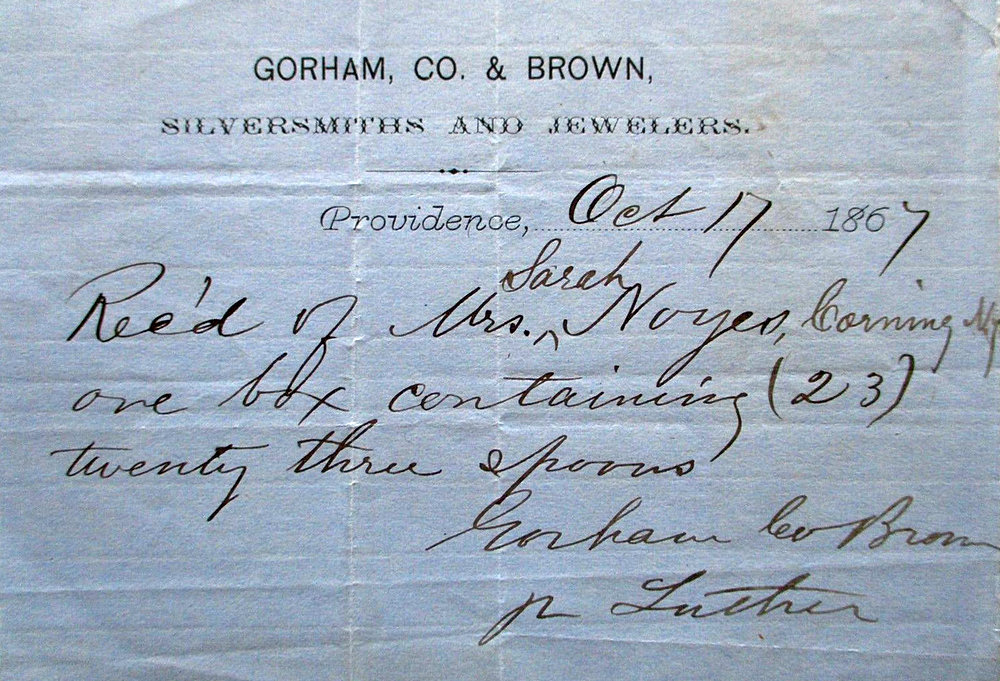 GORHAM, CO. & BROWN,
SILVERSMITHS AND JEWELERS.
Providence, Oct 17 1867
Rec'd of Mrs. ^Sarah Noyes, Corning Ny
one box containing (23)
twenty three spoons
Gorham Co Brown
pr Luther